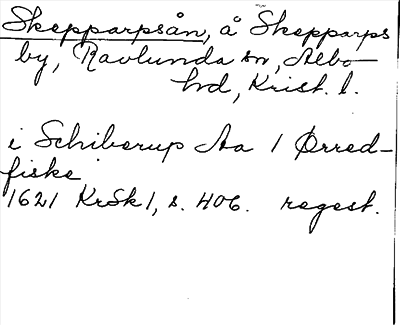 Skepparpsån, å Skepparps
by, Ravlunda sn, Albo
hd, Krist. l.
i Schiberup Aa 1 Ørred-
fiske
1621 KrSk 1, s. 406. regest.